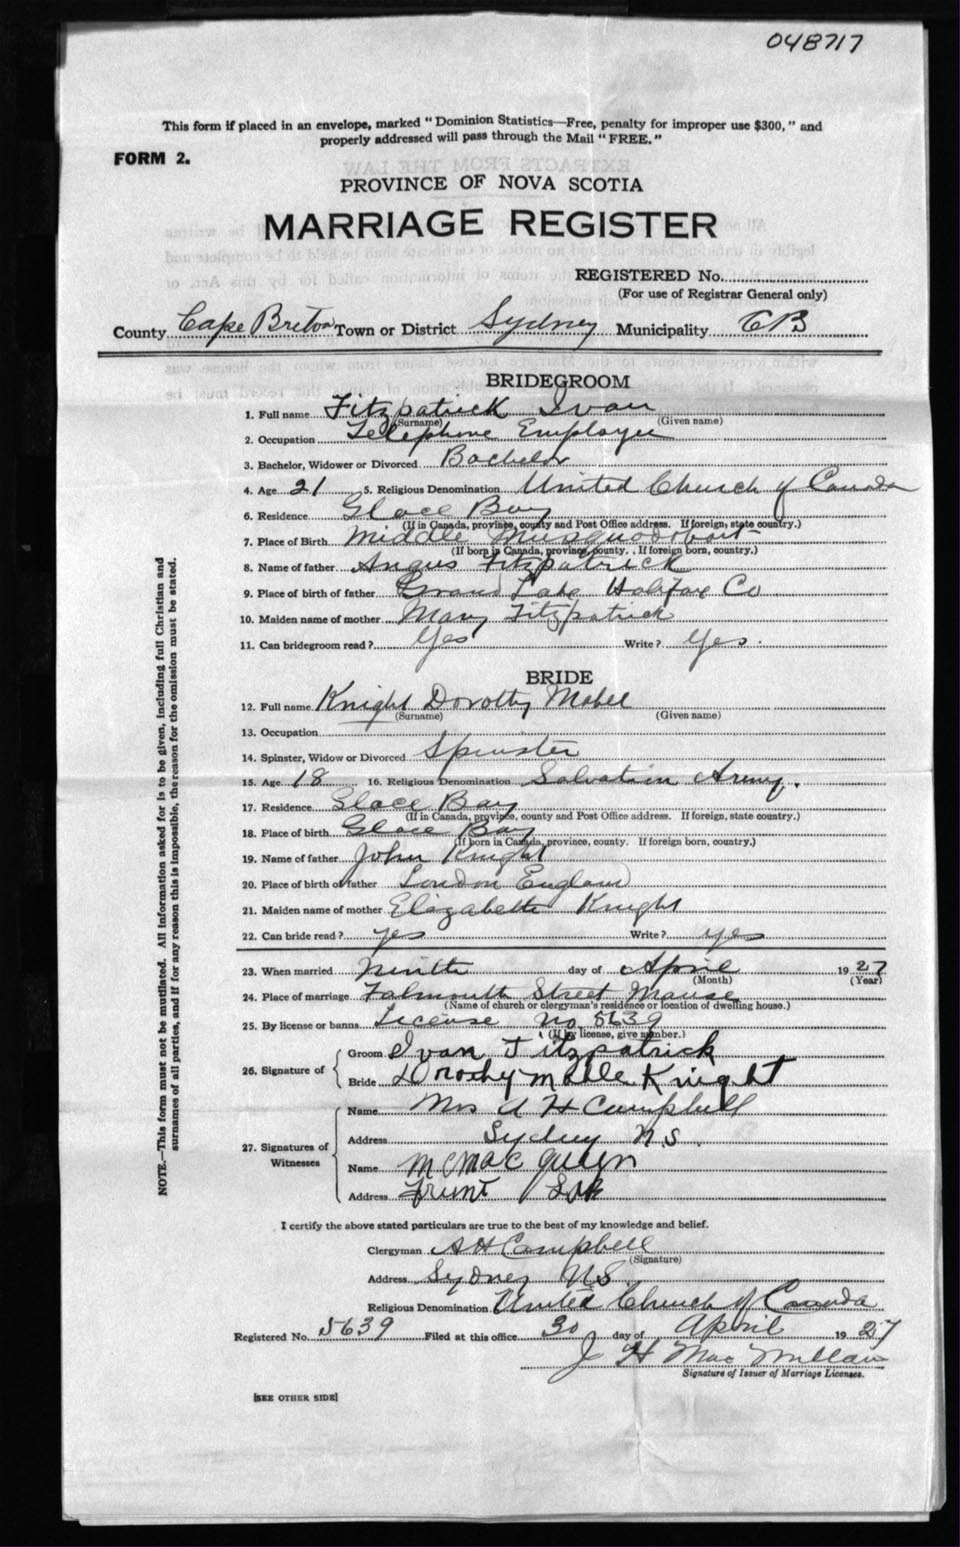 048717
This form if placed in an envelope, marked "Dominion Statistics—Free, penalty for improper use $300," and
properly addressed will pass through the Mail "FREE."
FORM 2.
PROVINCE OF NOVA SCOTIA
MARRIAGE REGISTER
REGISTERED No.
(For use of Registrar General only)
County Cape Breton Town or District Sydney Municipality CB
BRIDEGROOM
1. Full name Fitzpatrick Ivan
(Surname) (Given name)
2. Occupation Telephone Employee
3. Bachelor, Widower or Divorced Bachelor
4. Age 21 5. Religious Denomination United Church of Canada
6. Residence Glace Bay
(If in Canada, province, county and Post Office address. If foreign, state country.)
7. Place of Birth Middle Musquodoboit
(If born in Canada, province, county. If foreign born, country.)
8. Name of father Angus Fitzpatrick
9. Place of birth of father Grand Lake Halifax Co
10. Maiden name of mother Mary Fitzpatrick
11. Can bridegroom read? Yes Write? Yes.
BRIDE
12. Full name Knight Dorothy Mabel
(Surname) (Given name)
13. Occupation
14. Spinster, Widow or Divorced Spinster
15. Age 18 16. Religious Denomination Salvation Army.
17. Residence Glace Bay
(If in Canada, province, county and Post Office address. If foreign, state country.)
18. Place of birth Glace Bay
(If born in Canada, province, county. If foreign born, country.)
19. Name of father John Knight
20. Place of birth of father London England
21. Maiden name of mother Elizabeth Knight
22. Can bride read? yes Write? yes
23. When married Ninth day of April 1927
(Month) (Year)
24. Place of marriage Falmouth Street Manse
(Name of church or clergyman's residence or location of dwelling house.)
25. By license or banns License No 5639
(If by license, give number.)
26. Signature of
Groom Ivan Fitzpatrick
Bride Dorothy Mabel Knight
27. Signatures of Witnesses
Name Mrs A H Campbell
Address Sydney N.S.
Name
Address
I certify the above stated particulars are true to the best of my knowledge and belief.
Clergyman A H Campbell
(Signature)
Address Sydney N.S.
Religious Denomination United Church of Canada
Registered No. 5639 Filed at this office 30 day of April 1927
J H MacMillan
Signature of Issuer of Marriage Licenses.
[SEE OTHER SIDE]
NOTE.—This form must not be mutilated. All information asked for is to be given, including full Christian and
surnames of all parties, and if for any reason this is impossible, the reason for the omission must be stated.